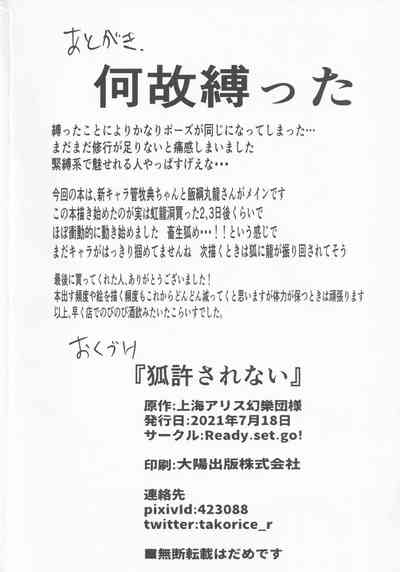 あとがき.
何故縛った
縛ったことによりかなりポーズが同じになってしまった…
まだまだ修行が足りないと痛感しまいました
緊縛系で魅せれる人やっぱすげえな・・・
今回の本は、新キャラ管牧典ちゃんと飯綱丸龍さんがメインです
この本描き始めたのが実は虹龍洞買った2,3日後くらいで
ほぼ衝動的に動き始めました 畜生狐め・・・！！という感じで
まだキャラがはっきり掴めてませんね 次描くときは狐に龍が振り回されてそう
最後に買ってくれた人、ありがとうございました！
本出す頻度や絵を描く頻度もこれからどんどん減ってくと思いますが体力が保つときは頑張ります
以上、早く店でのびのび酒飲みたいたこらいすでした。
おくづけ
『狐許されない』
原作:上海アリス幻樂団様
発行日:2021年7月18日
サークル:Ready.set.go!
印刷:大陽出版株式会社
連絡先
pixivId:423088
twitter:takorice_r
■無断転載はだめです